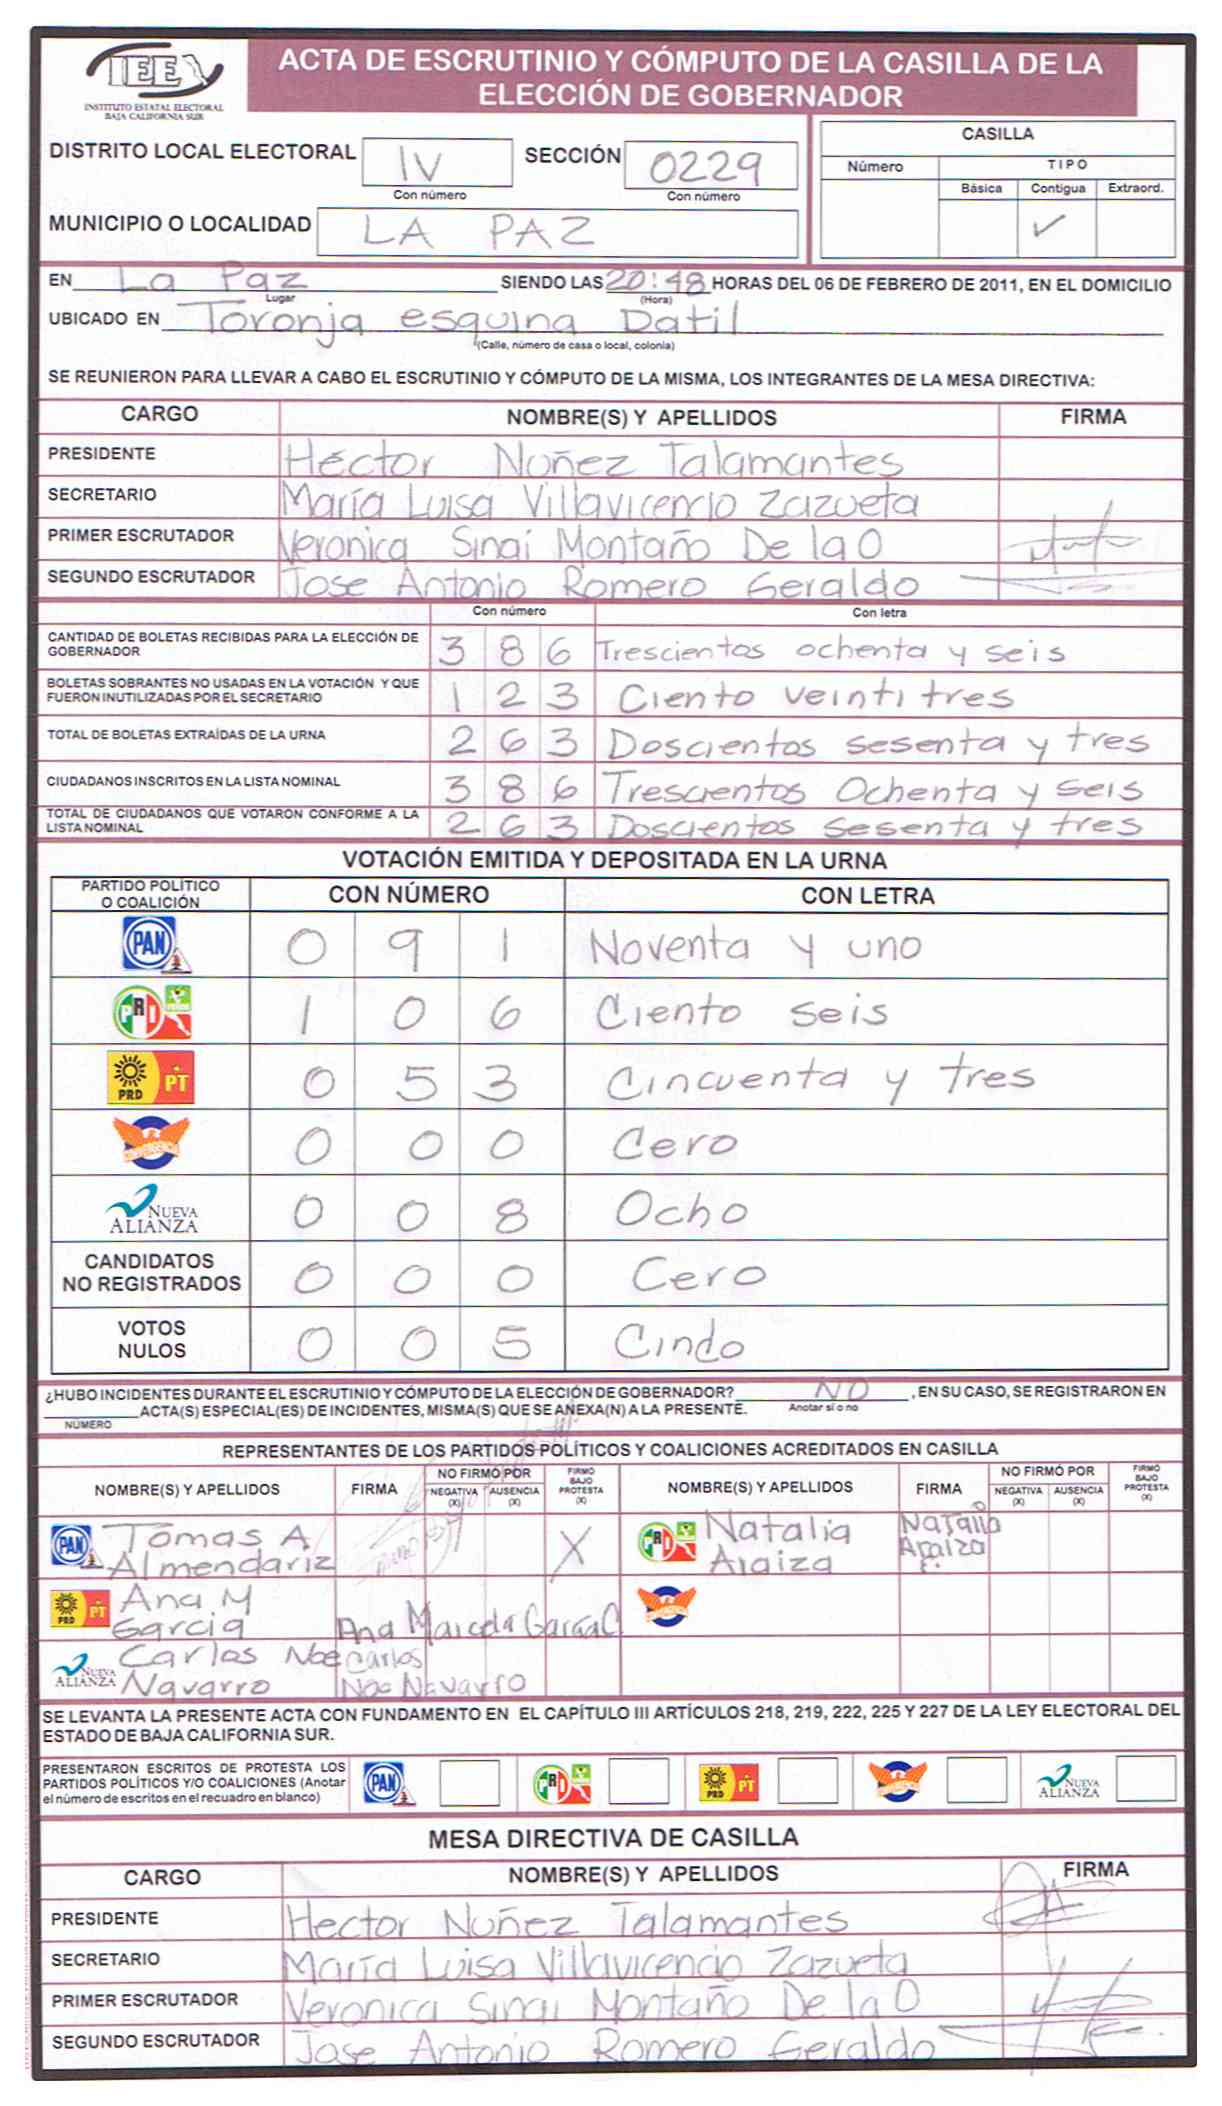 IEE
INSTITUTO ESTATAL ELECTORAL
BAJA CALIFORNIA SUR
ACTA DE ESCRUTINIO Y CÓMPUTO DE LA CASILLA DE LA
ELECCIÓN DE GOBERNADOR
DISTRITO LOCAL ELECTORAL IV SECCIÓN 0229
Con número Con número
MUNICIPIO O LOCALIDAD LA PAZ
CASILLA
Número TIPO
Básica Contigua Extraord.
✓
EN La Paz SIENDO LAS 20:48 HORAS DEL 06 DE FEBRERO DE 2011, EN EL DOMICILIO
Lugar (Hora)
UBICADO EN Toronja esquina Datil
(Calle, número de casa o local, colonia)
SE REUNIERON PARA LLEVAR A CABO EL ESCRUTINIO Y CÓMPUTO DE LA MISMA, LOS INTEGRANTES DE LA MESA DIRECTIVA:
CARGO NOMBRE(S) Y APELLIDOS FIRMA
PRESIDENTE Héctor Nuñez Talamantes
SECRETARIO María Luisa Villavicencio Zazueta
PRIMER ESCRUTADOR Veronica Sinai Montaño De la O
SEGUNDO ESCRUTADOR Jose Antonio Romero Geraldo
Con número Con letra
CANTIDAD DE BOLETAS RECIBIDAS PARA LA ELECCIÓN DE
GOBERNADOR 3 8 6 Trescientos ochenta y seis
BOLETAS SOBRANTES NO USADAS EN LA VOTACIÓN Y QUE
FUERON INUTILIZADAS POR EL SECRETARIO 1 2 3 Ciento veintitres
TOTAL DE BOLETAS EXTRAÍDAS DE LA URNA 2 6 3 Doscientos sesenta y tres
CIUDADANOS INSCRITOS EN LA LISTA NOMINAL 3 8 6 Trescientos Ochenta y seis
TOTAL DE CIUDADANOS QUE VOTARON CONFORME A LA
LISTA NOMINAL 2 6 3 Doscientos sesenta y tres
VOTACIÓN EMITIDA Y DEPOSITADA EN LA URNA
PARTIDO POLÍTICO
O COALICIÓN CON NÚMERO CON LETRA
PAN 0 9 1 Noventa y uno
PRI 1 0 6 Ciento seis
PRD PT 0 5 3 Cincuenta y tres
CONVERGENCIA 0 0 0 Cero
NUEVA
ALIANZA 0 0 8 Ocho
CANDIDATOS
NO REGISTRADOS 0 0 0 Cero
VOTOS
NULOS 0 0 5 Cindo
¿HUBO INCIDENTES DURANTE EL ESCRUTINIO Y CÓMPUTO DE LA ELECCIÓN DE GOBERNADOR? NO , EN SU CASO, SE REGISTRARON EN
ACTA(S) ESPECIAL(ES) DE INCIDENTES, MISMA(S) QUE SE ANEXA(N) A LA PRESENTE. Anotar sí o no
NÚMERO
REPRESENTANTES DE LOS PARTIDOS POLÍTICOS Y COALICIONES ACREDITADOS EN CASILLA
NOMBRE(S) Y APELLIDOS FIRMA NO FIRMÓ POR NEGATIVA (X) AUSENCIA (X) FIRMÓ BAJO PROTESTA (X) NOMBRE(S) Y APELLIDOS FIRMA NO FIRMÓ POR NEGATIVA (X) AUSENCIA (X) FIRMÓ BAJO PROTESTA (X)
PAN Tomas A X PRI Natalia Natalia
Almendariz Araiza Araiza
PRD PT Ana M
Garcia Ana Marcela Garcia C
CONVERGENCIA
NUEVA
ALIANZA Carlos Noe Carlos
Navarro Noe Navarro
SE LEVANTA LA PRESENTE ACTA CON FUNDAMENTO EN EL CAPÍTULO III ARTÍCULOS 218, 219, 222, 225 Y 227 DE LA LEY ELECTORAL DEL
ESTADO DE BAJA CALIFORNIA SUR.
PRESENTARON ESCRITOS DE PROTESTA LOS
PARTIDOS POLÍTICOS Y/O COALICIONES (Anotar
el número de escritos en el recuadro en blanco)
PAN PRI PRD PT CONVERGENCIA NUEVA ALIANZA
MESA DIRECTIVA DE CASILLA
CARGO NOMBRE(S) Y APELLIDOS FIRMA
PRESIDENTE Hector Nuñez Talamantes
SECRETARIO María Luisa Villavicencio Zazueta
PRIMER ESCRUTADOR Veronica Sinai Montaño De la O
SEGUNDO ESCRUTADOR Jose Antonio Romero Geraldo